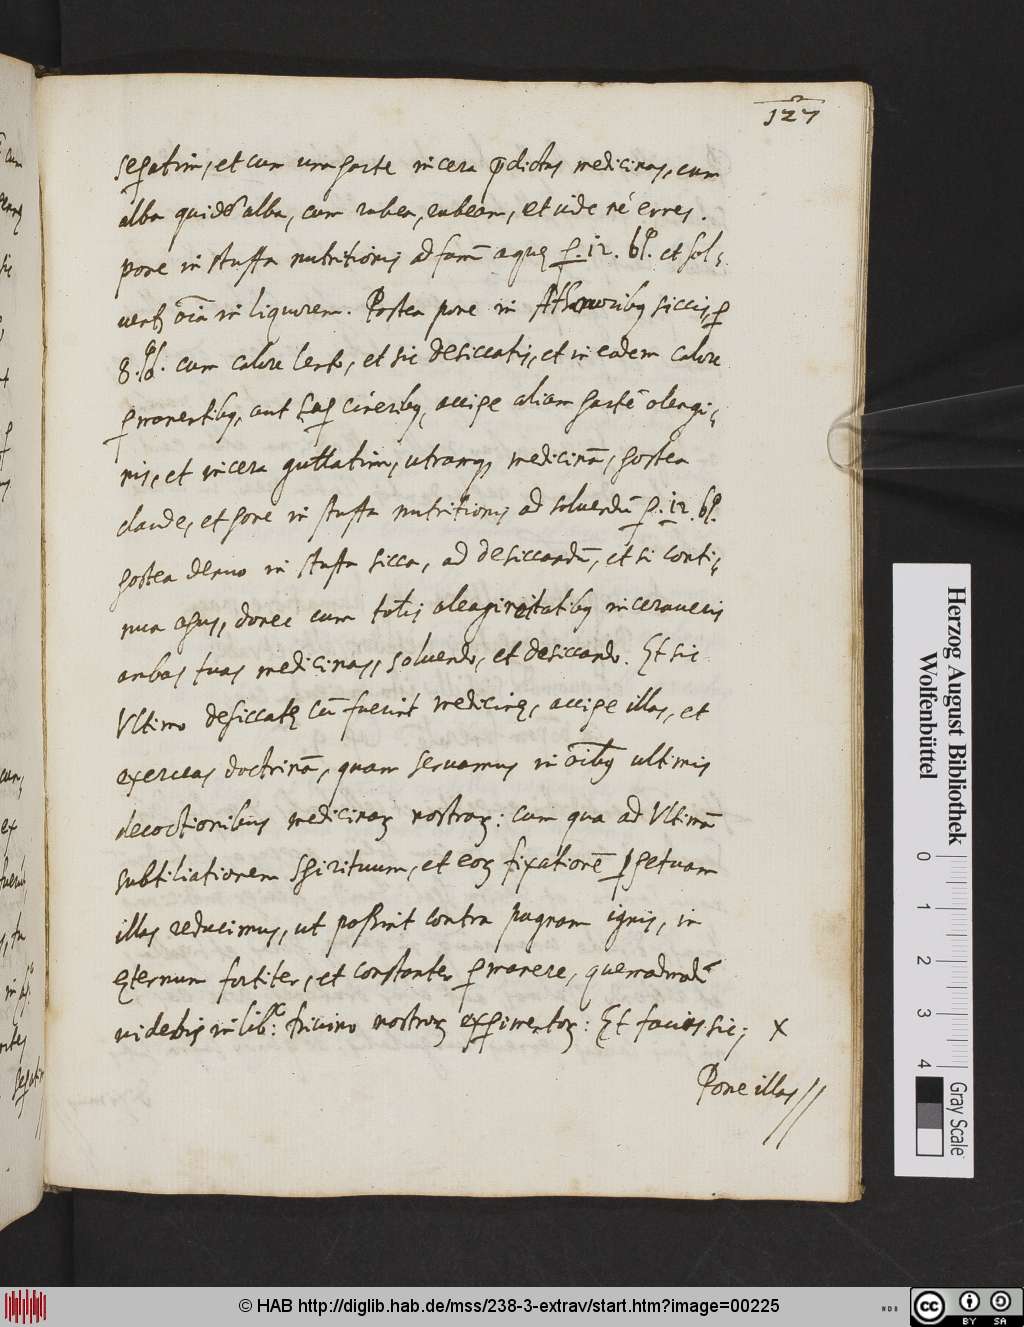 127
sepatim, et cum una parte incera p̄dictas medicinas, cum
alba quidē alba, cum rubea, rubeam, et vide nē erres.
pone in stuffa nutritionis ad fumū aquę p. 12. et sol-
uent oīa in liquorem. Postea pone in siccis, p
8. cum calore lento, et sic desiccatis, et in eadem calore
pmanentibus, aut cineribus, accipe aliam partē oleagi-
nis, et incera guttatim, utramq, medicinā, postea
claude, et pone in stuffa nutritionis ad soluendū p. 12.
postea denuo in stuffa sicca, ad desiccandū, et si conti-
nua opus, donec cum totis oleaginitatibus inceraueris
ambas tuas medicinas, soluendo, et desiccando. Et sic
Vltimo desiccatę cū fuerint medicinę, accipe illas, et
exerceas doctrinā, quam seruamus in oībus ultimis
decoctionibus medicinaꝝ nostraꝝ: cum qua ad Vltimā
subtiliationem spirituum, et eoꝝ fixationē ppetuam
illas reducimus, ut possint contra pugnam ignis, in
ęternum fortiter, et constanter pmanere, quemadmodū
videbis in lib: nostroꝝ expimentoꝝ: Et facies sic; x
Pone illas //
Herzog August Bibliothek
Wolfenbüttel
0 1 2 3 4
Gray Scale
© HAB http://diglib.hab.de/mss/238-3-extrav/start.htm?image=00225
NDB
cc BY SA